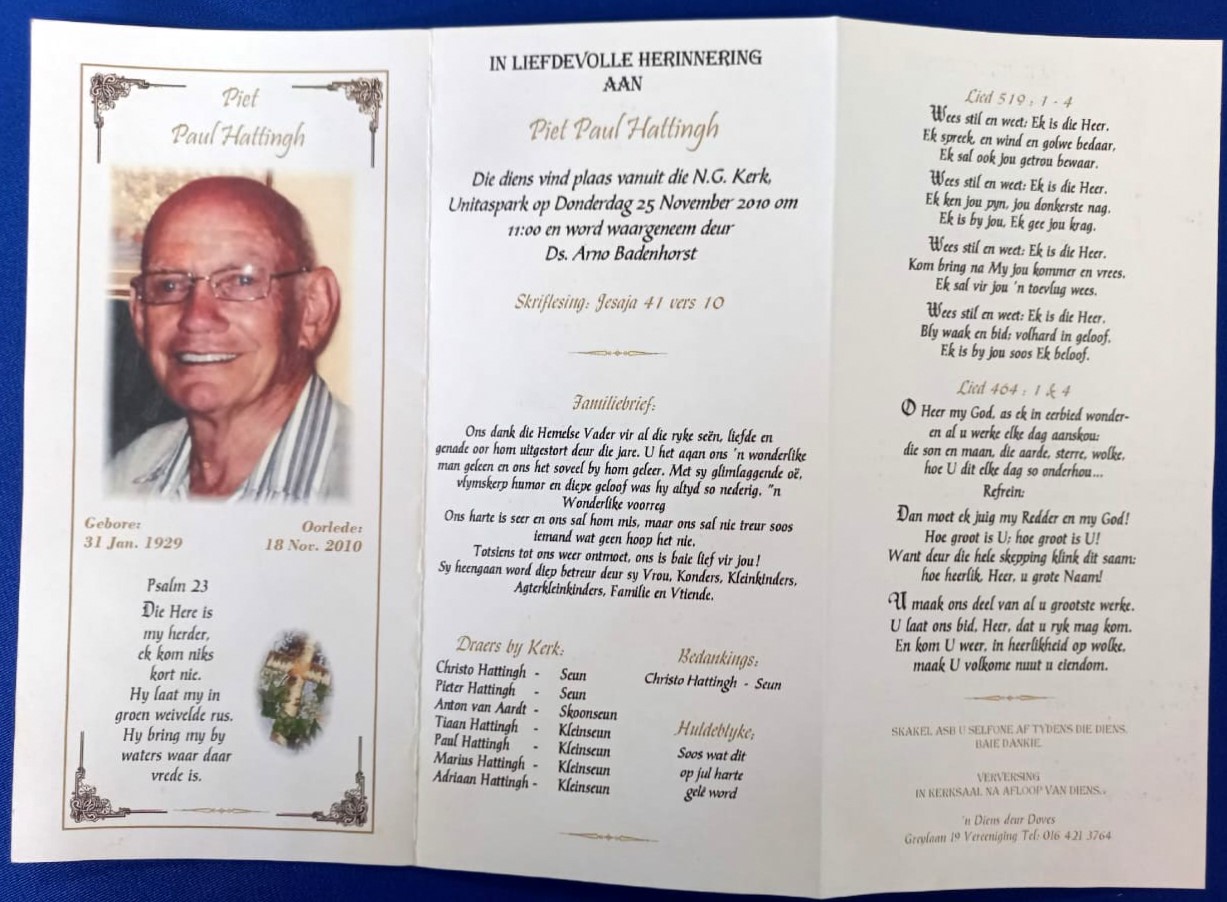 Piet
Paul Hattingh
Gebore:
31 Jan. 1929
Oorlede:
18 Nov. 2010
Psalm 23
Die Here is
my herder,
ek kom niks
kort nie.
Hy laat my in
groen weivelde rus.
Hy bring my by
waters waar daar
vrede is.
IN LIEFDEVOLLE HERINNERING
AAN
Piet Paul Hattingh
Die diens vind plaas vanuit die N.G. Kerk,
Unitaspark op Donderdag 25 November 2010 om
11:00 en word waargeneem deur
Ds. Arno Badenhorst
Skriflesing: Jesaja 41 vers 10
Familiebrief:
Ons dank die Hemelse Vader vir al die ryke seën, liefde en
genade oor hom uitgestort deur die jare. U het aqan ons 'n wonderlike
man geleen en ons het soveel by hom geleer. Met sy glimlaggende oë,
vlymskerp humor en diepe geloof was hy altyd so nederig. "n
Wonderlike voorreg
Ons harte is seer en ons sal hom mis, maar ons sal nie treur soos
iemand wat geen hoop het nie.
Totsiens tot ons weer ontmoet, ons is baie lief vir jou!
Sy heengaan word diep betreur deur sy Vrou, Konders, Kleinkinders,
Agterkleinkinders, Familie en Vtiende.
Draers by Kerk:
Christo Hattingh - Seun
Pieter Hattingh - Seun
Anton van Aardt - Skoonseun
Tiaan Hattingh - Kleinseun
Paul Hattingh - Kleinseun
Marius Hattingh - Kleinseun
Adriaan Hattingh - Kleinseun
Bedankings:
Christo Hattingh - Seun
Huldeblyke:
Soos wat dit
op jul harte
gelê word
Lied 519 : 1 - 4
Wees stil en weet: Ek is die Heer.
Ek spreek, en wind en golwe bedaar,
Ek sal ook jou getrou bewaar.
Wees stil en weet: Ek is die Heer.
Ek ken jou pyn, jou donkerste nag.
Ek is by jou, Ek gee jou krag.
Wees stil en weet: Ek is die Heer.
Kom bring na My jou kommer en vrees.
Ek sal vir jou 'n toevlug wees.
Wees stil en weet: Ek is die Heer.
Bly waak en bid; volhard in geloof.
Ek is by jou soos Ek beloof.
Lied 464 : 1 & 4
O Heer my God, as ek in eerbied wonder-
en al u werke elke dag aanskou:
die son en maan, die aarde, sterre, wolke,
hoe U dit elke dag so onderhou...
Refrein:
Dan moet ek juig my Redder en my God!
Hoe groot is U; hoe groot is U!
Want deur die hele skepping klink dit saam:
hoe heerlik, Heer, u grote Naam!
U maak ons deel van al u grootste werke.
U laat ons bid, Heer, dat u ryk mag kom.
En kom U weer, in heerlikheid op wolke,
maak U volkome nuut u eiendom.
SKAKEL ASB U SELFONE AF TYDENS DIE DIENS.
BAIE DANKIE.
VERVERSING
IN KERKSAAL NA AFLOOP VAN DIENS.
'n Diens deur Doves
Greylaan 19 Vereeniging Tel: 016 421 3764